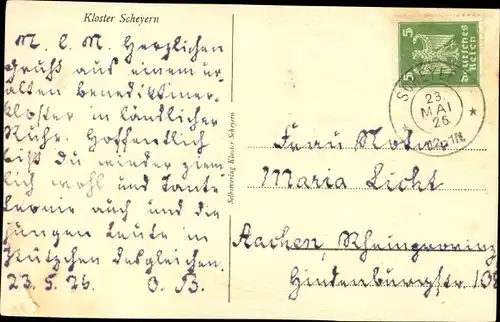 Kloster Scheyern
M. l. M. Herzlichen
Gruß aus einem ur-
alten Benediktiner-
kloster in ländlicher
Ruhe. Hoffentlich
bist du wieder ziem-
lich wohl und Tante
Leonie auch und die
jungen Leute in
Stützchen desgleichen.
23.5.26. O. B.
Selbstverlag Kloster Scheyern
5 5
Deutsches
Reich
23.
MAI
26
Frau
Maria Licht
Aachen, Rheinprovinz
Hindenburgstr. 108